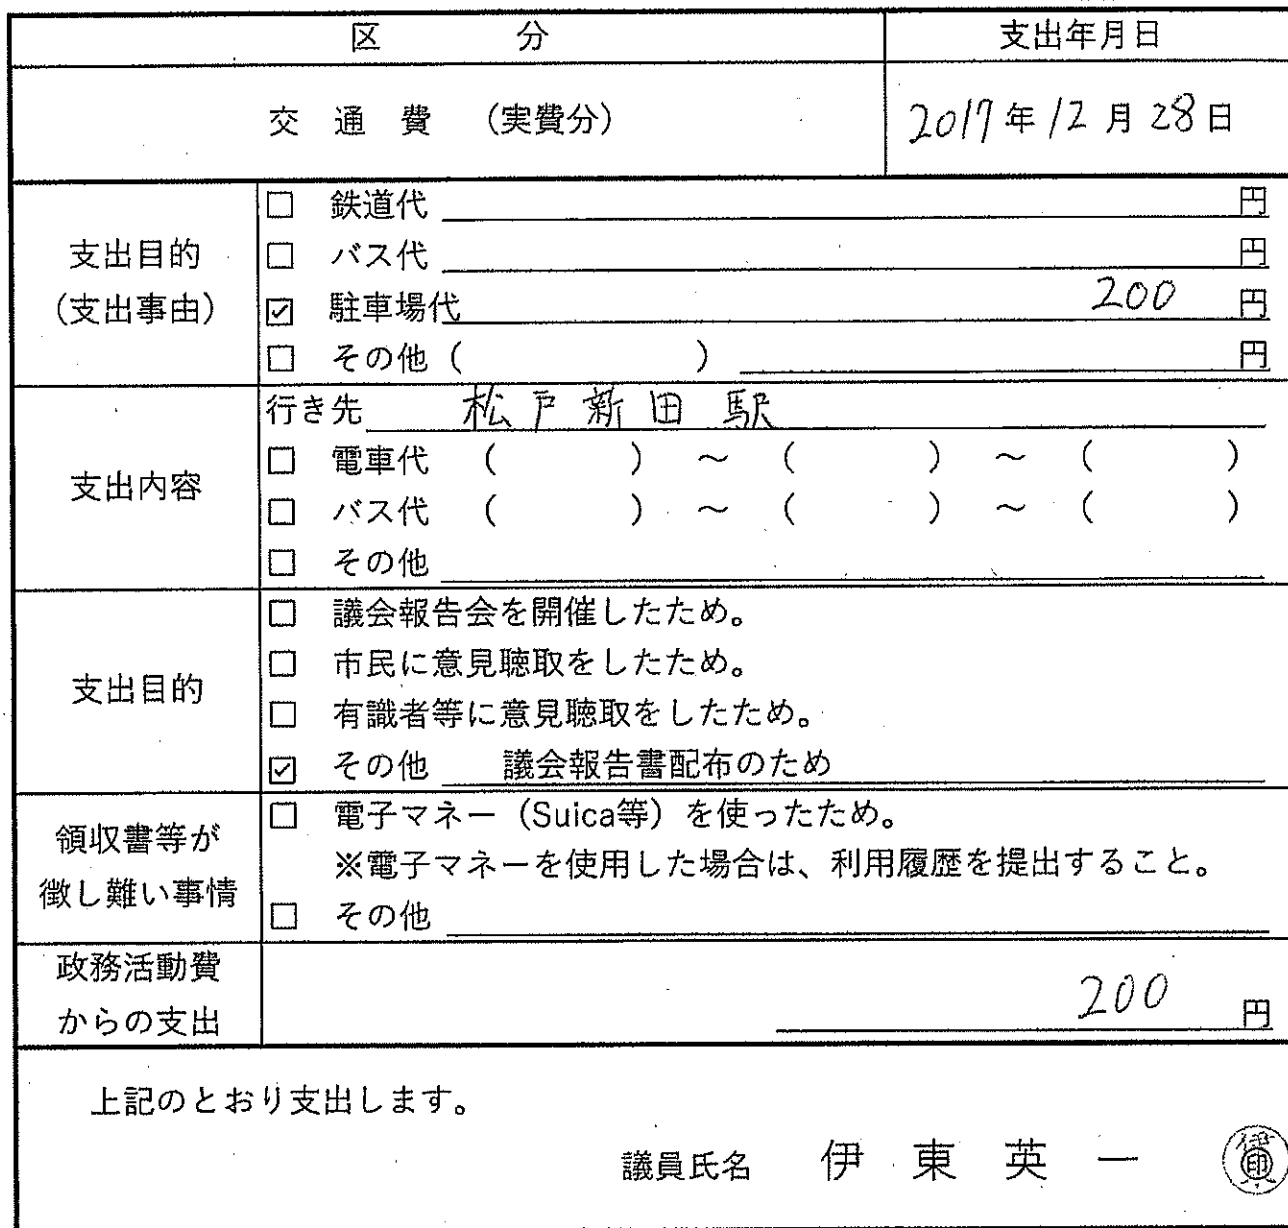 区 分 支出年月日
交 通 費 (実費分) 2017年12月28日
支出目的
(支出事由)
□ 鉄道代 円
□ バス代 円
☑ 駐車場代 200 円
□ その他 ( ) 円
支出内容
行き先 松戸新田駅
□ 電車代 ( ) ~ ( ) ~ ( )
□ バス代 ( ) ~ ( ) ~ ( )
□ その他
支出目的
□ 議会報告会を開催したため。
□ 市民に意見聴取をしたため。
□ 有識者等に意見聴取をしたため。
☑ その他 議会報告書配布のため
領収書等が
徴し難い事情
□ 電子マネー(Suica等)を使ったため。
※電子マネーを使用した場合は、利用履歴を提出すること。
□ その他
政務活動費
からの支出
200 円
上記のとおり支出します。
議員氏名 伊東英一 印